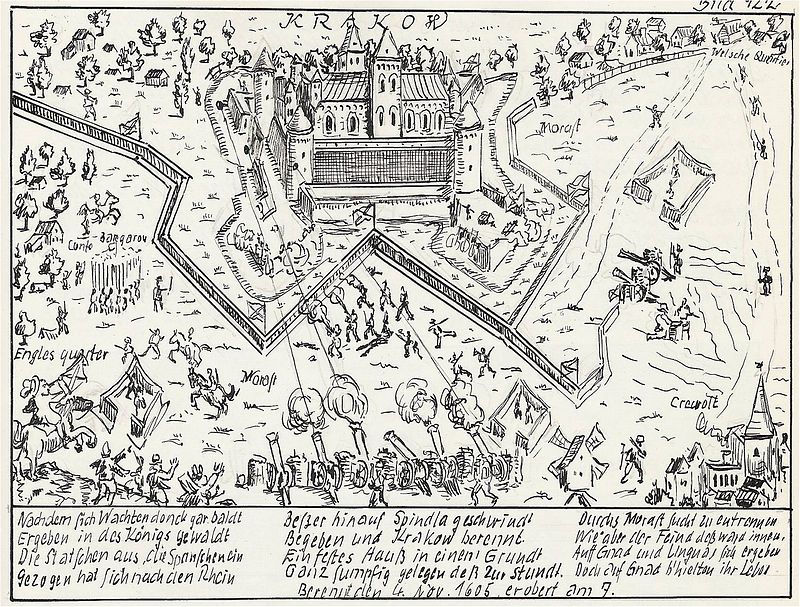 Bild 122
KRAKOW
Welsche Quartier
Morast
Conte Bangarou
Engles quarter
Morast
Crewolt
Nachdem sich Wachtendonck gar baldt
Ergeben in des Königs gewaldt
Die Statschen aus, die Spanschen ein
Gezogen hat sich nach den Rhein
Beszer hinauf Spindla geschwindt
Begeben und Krakow berennt.
Ein festes Hauß in einem Grundt
Ganz sumpfig gelegen deß zur stundt.
Berennt den 4. Nov. 1605 erobert am 7.
Durchs Morast sucht zu entrennen
Wie aber der Feind deß ward innen.
Auff Gnad und Ungnad sich ergeben
Doch auf Gnad b'hielten ihr Leben